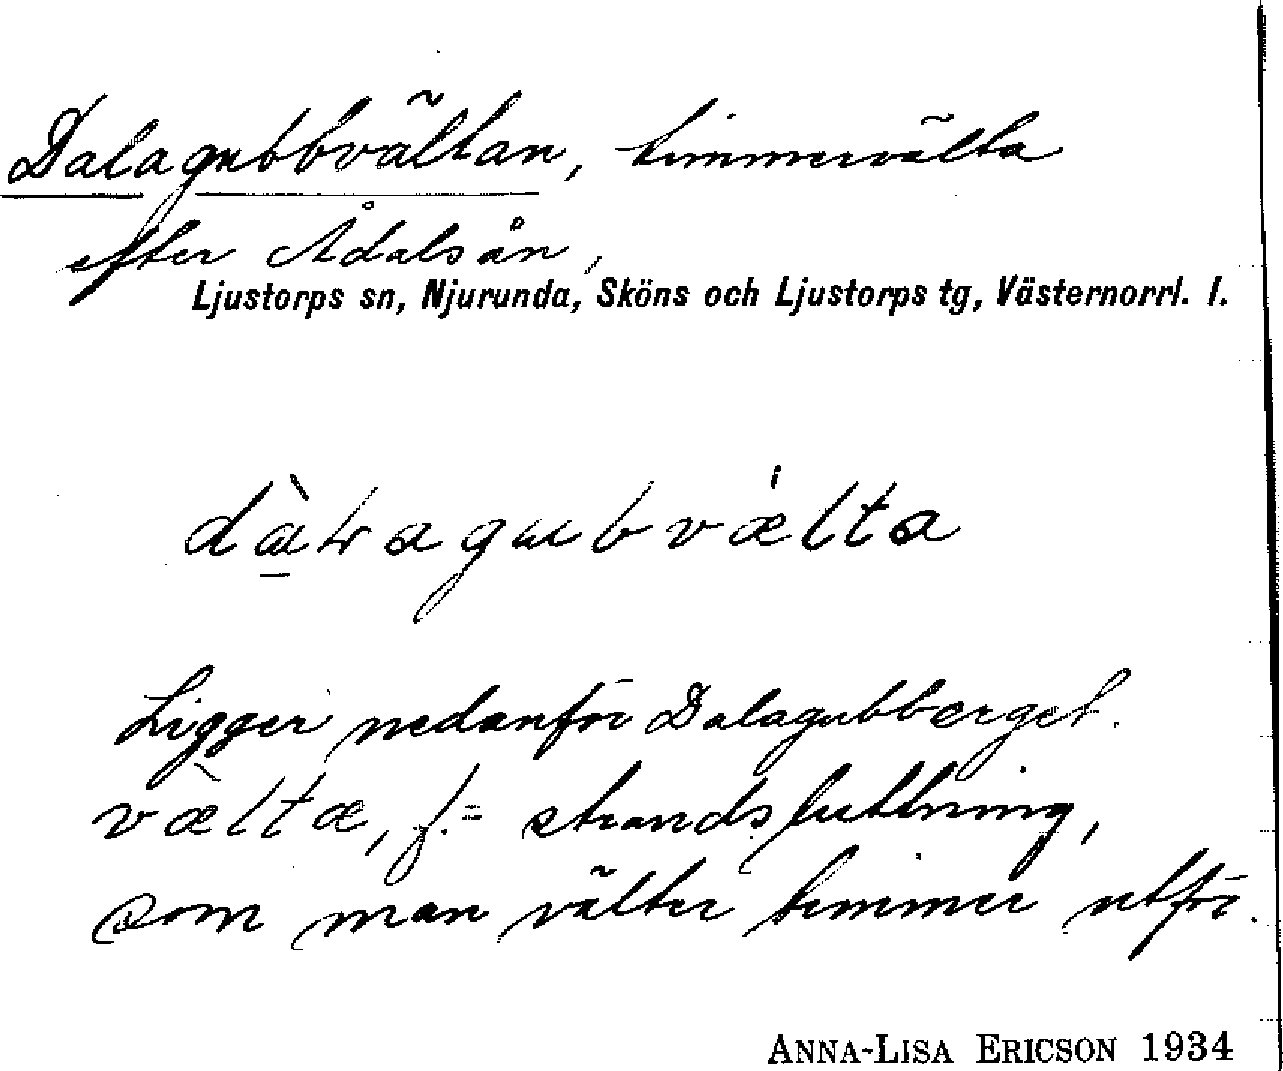 Dalagubbvältan, timmervälta
efter Ådalsån,
Ljustorps sn, Njurunda, Sköns och Ljustorps tg, Västernorrl. l.
Ligger nedanför Dalagubberget.
væ̀ltæ, f. = strandsluttning,
som man välter timmer utför.
ANNA-LISA ERICSON 1934